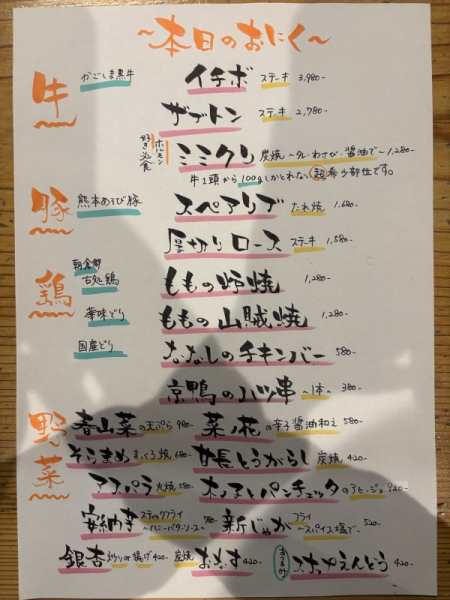 ～本日のおにく～
牛 かごしま黒牛 イチボ ステーキ 3,980-
ザブトン ステーキ 2,780-
好き必食 ホルモン ミミクリ 炭焼 ～タレ・わさび・醤油で～ 1,280-
牛1頭から100gしかとれない超希少部位です。
豚 熊本あそび豚 スペアリブ たれ焼 1,680-
厚切りロース ステーキ 1,580-
鶏 朝倉郡 古処鶏 ももの炉焼 1,280-
華味どり ももの山賊焼 1,280-
国産どり ななしのチキンバー 580-
京鴨のハツ串 ～1本～ 380-
野菜 春山菜の天ぷら 980- 菜ノ花の辛子醤油和え 580-
そらまめ 680- 甘長とうがらし 炭焼 420-
アスパラ 炭焼 580- パンチェッタのアヒージョ 920-
安納芋 スティックフライ ～ハニーバターソース～ 780- 新じゃが フライ ～スパイス塩で～ 520-
銀杏 炒りor揚げ 420- 炭焼 おなす 420- スナックえんどう 420-